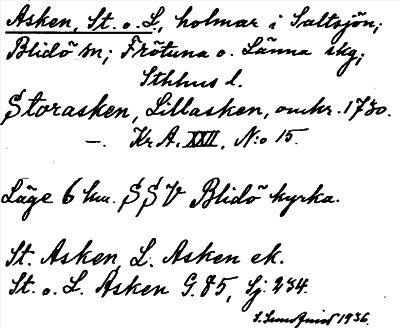 Asken, St. o. L., holmar i Saltsjön;
Blidö sn; Frötuna o. Länna skg;
Sthlms l.
Storasken, Lillasken, omkr. 1730.
—. Kr. A. XXII, N:o 15.
Läge 6 km. SSV Blidö kyrka.
St. Asken, L. Asken ek.
St. o. L. Asken G. 85, Sj. 234.
1936.